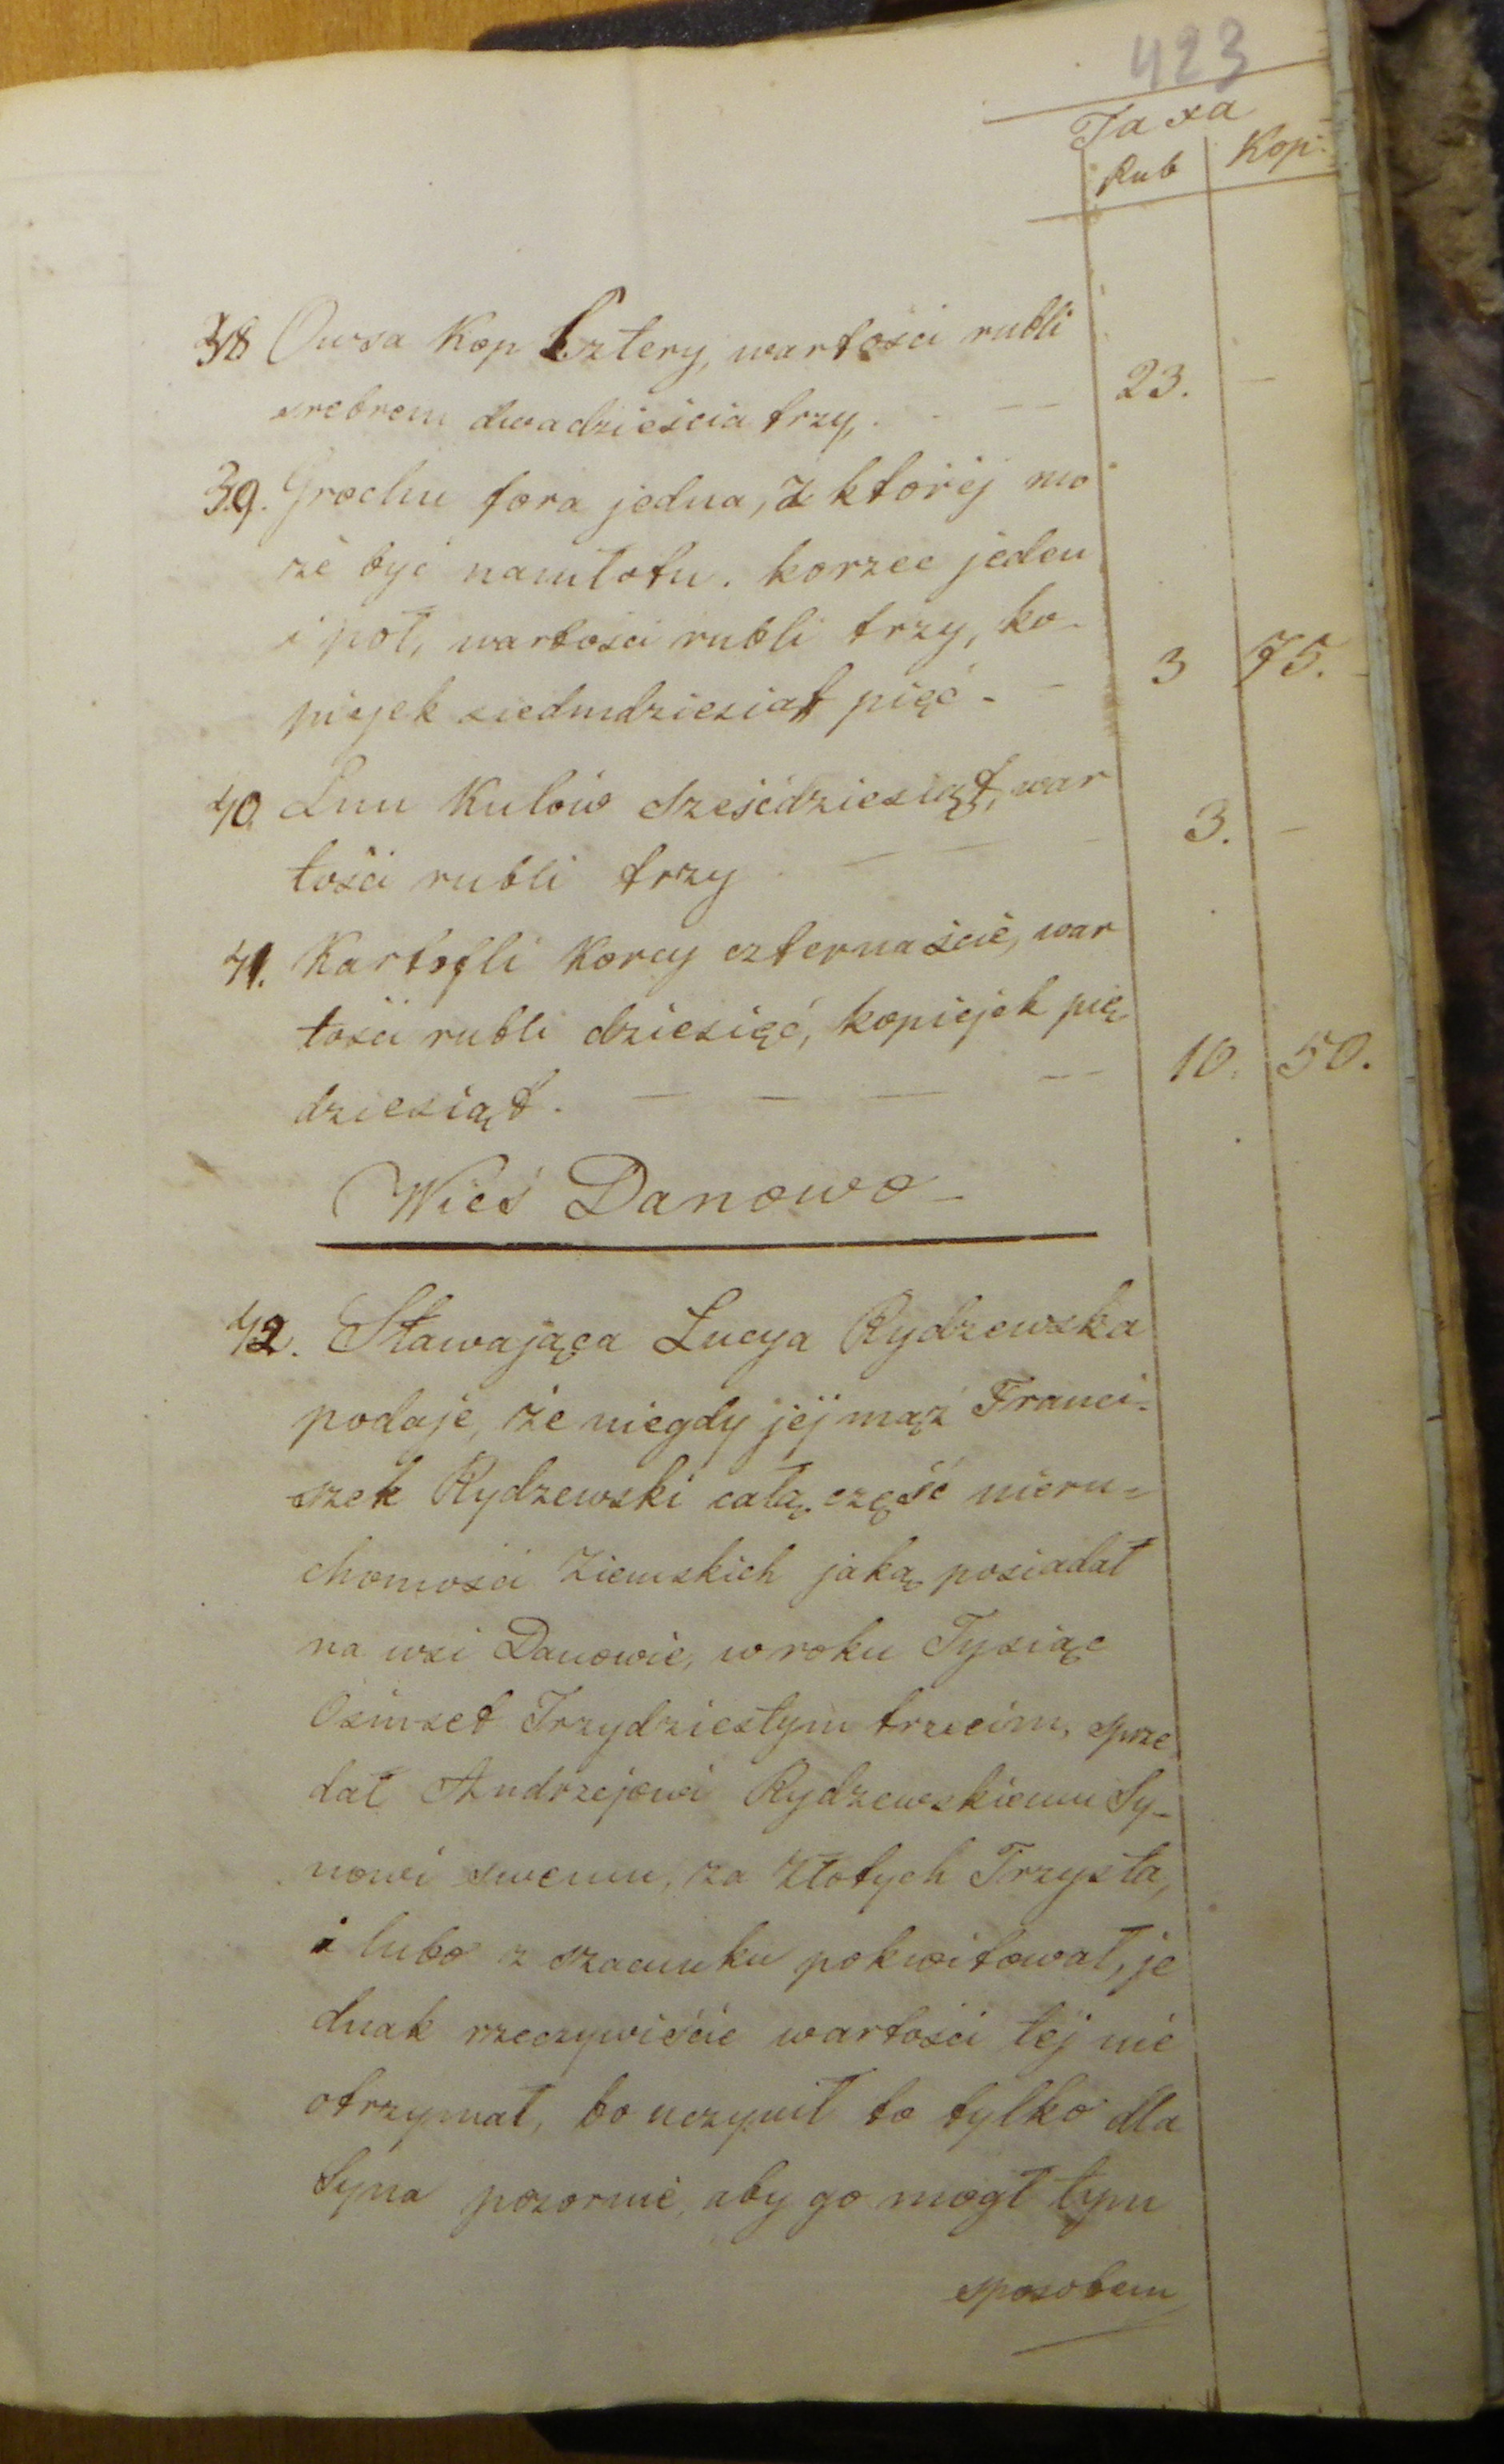 423
Taxa
Rub Kop:
38 Owsa Kop Cztery, wartości rubli
srebrem dwadzieścia trzy, . — 23. —
39. Grochu fora jedna, z której mo
że być namłotu. korzec jeden
i pół, wartości rubli trzy, ko-
piejek siedmdziesiąt pięć - — 3 75.
40. Lnu Kulów sześćdziesiąt, war
tości rubli trzy — — — 3. —
41. Kartofli Korcy czternaście, war
tości rubli dziesięć, kopiejek pię
dziesiąt. — — — — 10. 50.
Wieś Danowo -
42. Stawająca Lucya Rydzewska
podaje, że niegdy jéj mąż Franci-
szek Rydzewski całą część nieru=
chomości Ziemskich jaką posiadał
na wsi Danowie, w roku Tysiąc
Ośmset Trzydziestym trzecim, sprze
dał Andrzejowi Rydzewskiemu Sy-
nowi swemu, za Złotych Trzysta,
i lubo z szacunku pokwitował, je
dnak rzeczywiście wartości téj nie
otrzymał, bo uczynił to tylko dla
Syna pozornie, aby go mógł tym
sposobem